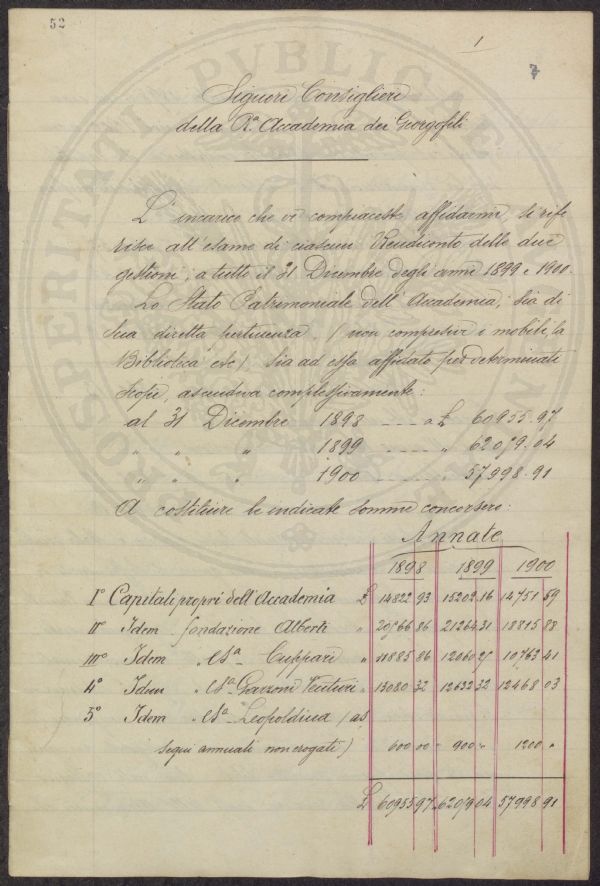 52
1
7
Signori Consiglieri
della Rª Accademia dei Georgofili
L'incarico che vi compiaceste affidarmi, si rife
risce all'esame di ciascun Rendiconto delle due
gestioni, a tutto il 31 Dicembre degli anni 1899 e 1900.
Lo Stato Patrimoniale dell'Accademia, sia di
sua diretta pertinenza, (non compresivi i mobili, la
Biblioteca etc) sia ad essa affidato per determinati
scopi, ascendeva complessivamente:
al 31 Dicembre 1898 ---- a £ 60955.97
" " " 1899 ---- " 62079.04
" " " 1900 ---- " 57998.91
A costituire le indicate somme concorsero:
Annate
1898 1899 1900
Iº Capitali propri dell'Accademia £ 14822 93 15202 16 14751 69
IIº Idem fondazione Alberti " 20766 86 21264 31 18815 88
IIIº Idem " Cuppari " 11885 86 12060 25 10763 41
4º Idem " Garzoni Venturi " 13080 32 12632 32 12468 03
5º Idem " Leopoldina (as
segni annuali non erogati) 600 00 900 " 1200 "
£ 60955 97 62079 04 57998 91
PROSPERITATI PUBLICAE